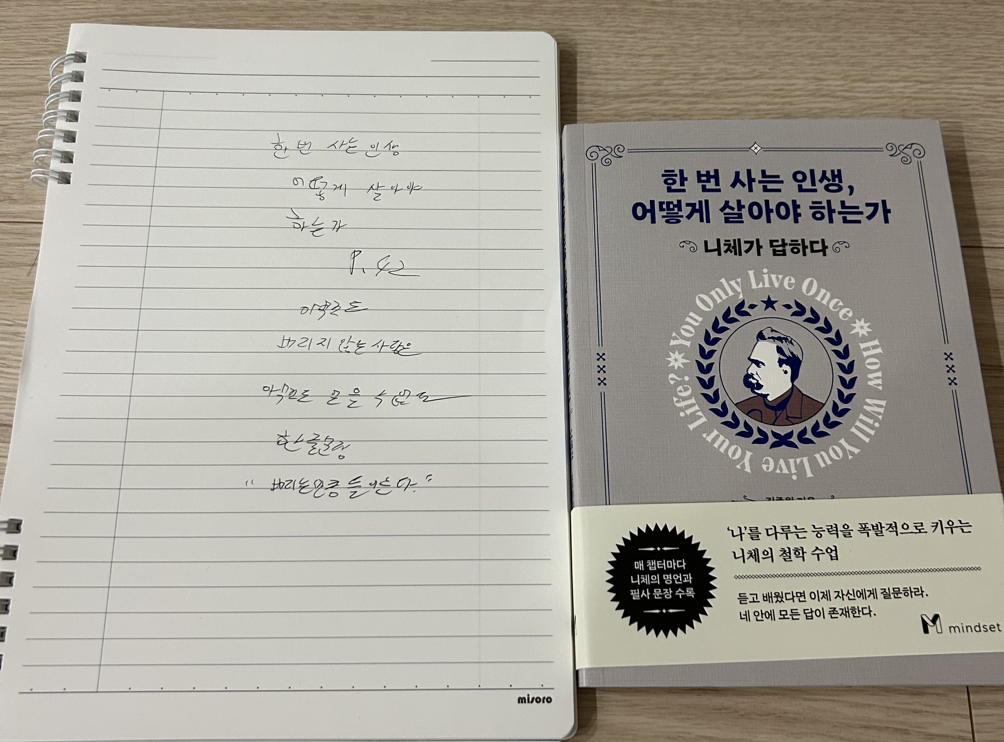 한 번 사는 인생
어떻게 살아야
하는가
P. 42
아무것도
버리지 않는 사람은
아무것도 얻을 수 없다
한글문장
"버리는 만큼 들어온다."
misoro
한 번 사는 인생,
어떻게 살아야 하는가
니체가 답하다
You Only Live Once
How Will You Live Your Life?
'나'를 다루는 능력을 폭발적으로 키우는
니체의 철학 수업
매 챕터마다
니체의 명언과
필사 문장 수록
듣고 배웠다면 이제 자신에게 질문하라.
네 안에 모든 답이 존재한다.
mindset